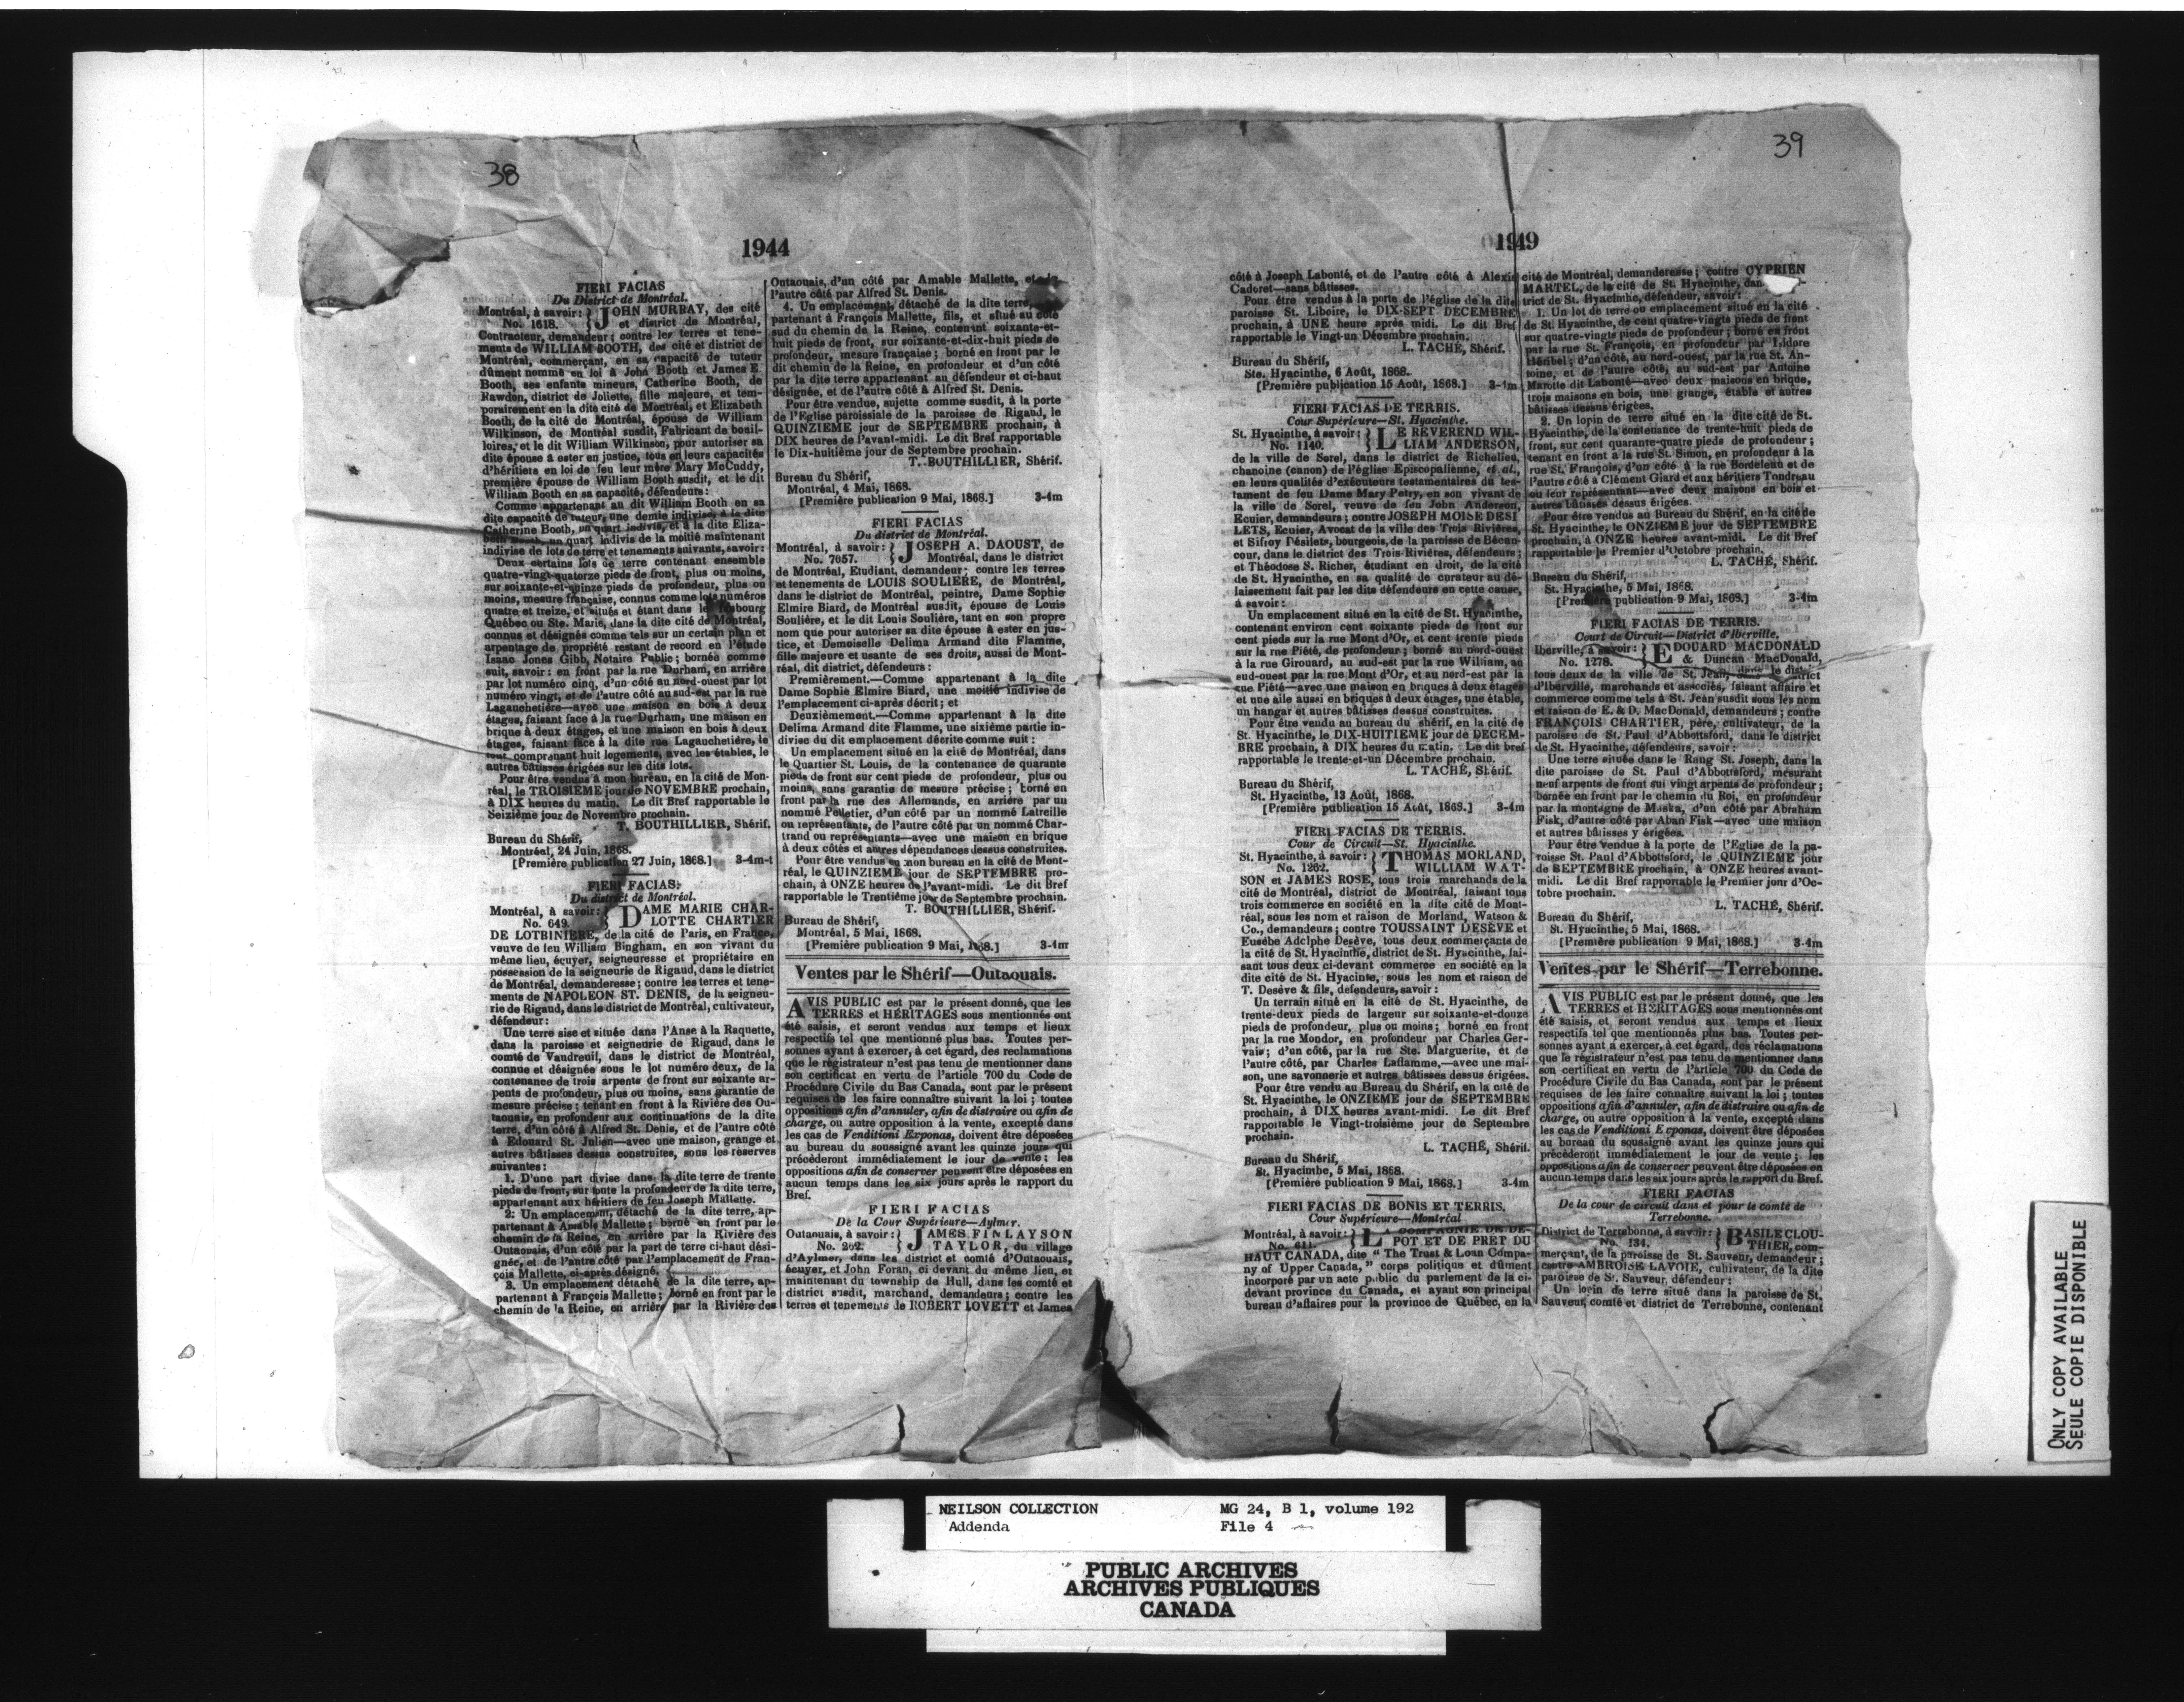 38
1944
FIERI FACIAS
Du District de Montréal.
Montréal, à savoir: } JOHN MURRAY, des cité
No. 1618. } et district de Montréal,
Contracteur, demandeur; contre les terres et tene-
ments de WILLIAM BOOTH, des cité et district de
Montréal, commerçant, en sa capacité de tuteur
dûment nommé en loi à John Booth et James E.
Booth, ses enfants mineurs, Catherine Booth, de
Rawdon, district de Joliette, fille majeure, et tem-
porairement en la dite cité de Montréal, et Elizabeth
Booth, de la cité de Montréal, épouse de William
Wilkinson, de Montréal susdit, Fabricant de bouil-
loires, et le dit William Wilkinson, pour autoriser sa
dite épouse à ester en justice, tous en leurs capacités
d'héritiers en loi de feu leur mère Mary McCuddy,
première épouse de William Booth susdit, et le dit
William Booth en sa capacité, défendeurs:
Comme appartenant au dit William Booth en sa
dite capacité de tuteur, une demie indivise, à la dite
Catherine Booth, un quart indivis, et à la dite Eliza-
beth Booth, un quart indivis de la moitié maintenant
indivise de lots de terre et tenements suivants, savoir:
Deux certains lots de terre contenant ensemble
quatre-vingt-quatorze pieds de front, plus ou moins,
sur soixante-et-quinze pieds de profondeur, plus ou
moins, mesure française, connus comme lots numéros
quatre et treize, et situés et étant dans le faubourg
Québec ou Ste. Marie, dans la dite cité de Montréal,
connus et désignés comme tels sur un certain plan et
arpentage de propriété restant de record en l'étude
Isaac Jones Gibb, Notaire Public; bornés comme
suit, savoir: en front par la rue Durham, en arrière
par lot numéro cinq, d'un côté au nord-ouest par lot
numéro vingt, et de l'autre côté au sud-est par la rue
Lagauchetière—avec une maison en bois à deux
étages, faisant face à la rue Durham, une maison en
brique à deux étages, et une maison en bois à deux
étages, faisant face à la dite rue Lagauchetière, le
tout comprenant huit logements, avec les étables, le
autres bâtisses érigées sur les dits lots.
Pour être vendus à mon bureau, en la cité de Mon-
réal, le TROISIEME jour de NOVEMBRE prochain,
à DIX heures du matin. Le dit Bref rapportable le
Seizième jour de Novembre prochain.
T. BOUTHILLIER, Shérif.
Bureau du Shérif,
Montréal, 24 Juin, 1868.
[Première publication 27 Juin, 1868.] 3-4m-t
FIERI FACIAS.
Du district de Montréal.
Montréal, à savoir: } DAME MARIE CHAR-
No. 649. } LOTTE CHARTIER
DE LOTBINIERE, de la cité de Paris, en France,
veuve de feu William Bingham, en son vivant du
même lieu, écuyer, seigneuresse et propriétaire en
possession de la seigneurie de Rigaud, dans le district
de Montréal, demanderesse; contre les terres et tene-
ments de NAPOLEON ST. DENIS, de la seigneu-
rie de Rigaud, dans le district de Montréal, cultivateur,
défendeur:
Une terre sise et située dans l'Anse à la Raquette,
dans la paroisse et seigneurie de Rigaud, dans le
comté de Vaudreuil, dans le district de Montréal,
connue et désignée sous le lot numéro deux, de la
contenance de trois arpents de front sur soixante ar-
pents de profondeur, plus ou moins, sans garantie de
mesure précise; tenant en front à la Rivière des Ou-
taouais, en profondeur aux continuations de la dite
terre, d'un côté à Alfred St. Denis, et de l'autre côté
à Edouard St. Julien—avec une maison, grange et
autres bâtisses dessus construites, sous les réserves
suivantes:
1. D'une part divise dans la dite terre de trente
pieds de front, sur toute la profondeur de la dite terre,
appartenant aux héritiers de feu Joseph Mallette.
2. Un emplacement, détaché de la dite terre, ap-
partenant à Amable Mallette; borné en front par le
chemin de la Reine, en arrière par la Rivière des
Outaouais, d'un côté par la part de terre ci-haut dési-
gnée, et de l'autre côté par l'emplacement de Fran-
çois Mallette, ci-après désigné.
3. Un emplacement détaché de la dite terre, ap-
partenant à François Mallette; borné en front par le
chemin de la Reine, en arrière par la Rivière des
Outaouais, d'un côté par Amable Mallette, et de
l'autre côté par Alfred St. Denis.
4. Un emplacement, détaché de la dite terre,
partenant à François Mallette, fils, et situé au côté
sud du chemin de la Reine, contenant soixante-et-
huit pieds de front, sur soixante-et-dix-huit pieds de
profondeur, mesure française; borné en front par le
dit chemin de la Reine, en profondeur et d'un côté
par la dite terre appartenant au défendeur et ci-haut
désignée, et de l'autre côté à Alfred St. Denis.
Pour être vendue, sujette comme susdit, à la porte
de l'Eglise paroissiale de la paroisse de Rigaud, le
QUINZIEME jour de SEPTEMBRE prochain, à
DIX heures de l'avant-midi. Le dit Bref rapportable
le Dix-huitième jour de Septembre prochain.
T. BOUTHILLIER, Shérif.
Bureau du Shérif,
Montréal, 4 Mai, 1868.
[Première publication 9 Mai, 1868.] 3-4m
FIERI FACIAS
Du district de Montréal.
Montréal, à savoir: } JOSEPH A. DAOUST, de
No. 7657. } Montréal, dans le district
de Montréal, Etudiant, demandeur; contre les terres
et tenements de LOUIS SOULIERE, de Montréal,
dans le district de Montréal, peintre, Dame Sophie
Elmire Biard, de Montréal susdit, épouse de Louis
Soulière, et le dit Louis Soulière, tant en son propre
nom que pour autoriser sa dite épouse à ester en jus-
tice, et Demoiselle Delima Armand dite Flamme,
fille majeure et usante de ses droits, aussi de Mont-
réal, dit district, défendeurs:
Premièrement.—Comme appartenant à la dite
Dame Sophie Elmire Biard, une moitié indivise de
l'emplacement ci-après décrit; et
Deuxièmement.—Comme appartenant à la dite
Delima Armand dite Flamme, une sixième partie in-
divise du dit emplacement décrite comme suit:
Un emplacement situé en la cité de Montréal, dans
le Quartier St. Louis, de la contenance de quarante
pieds de front sur cent pieds de profondeur, plus ou
moins, sans garantie de mesure précise; borné en
front par la rue des Allemands, en arrière par un
nommé Pelletier, d'un côté par un nommé Latreille
ou représentants, de l'autre côté par un nommé Char-
trand ou représentants—avec une maison en brique
à deux côtés et autres dépendances dessus construites.
Pour être vendus en mon bureau en la cité de Mont-
réal, le QUINZIEME jour de SEPTEMBRE pro-
chain, à ONZE heures de l'avant-midi. Le dit Bref
rapportable le Trentième jour de Septembre prochain.
T. BOUTHILLIER, Shérif.
Bureau de Shérif,
Montréal, 5 Mai, 1868.
[Première publication 9 Mai, 1868.] 3-4m
Ventes par le Shérif—Outaouais.
AVIS PUBLIC est par le présent donné, que les
TERRES et HÉRITAGES sous mentionnés ont
été saisis, et seront vendus aux temps et lieux
respectifs tel que mentionné plus bas. Toutes per-
sonnes ayant à exercer, à cet égard, des reclamations
que le régistrateur n'est pas tenu de mentionner dans
son certificat en vertu de l'article 700 du Code de
Procédure Civile du Bas Canada, sont par le présent
requises de les faire connaître suivant la loi; toutes
oppositions afin d'annuler, afin de distraire ou afin de
charge, ou autre opposition à la vente, excepté dans
les cas de Venditioni Exponas, doivent être déposées
au bureau du soussigné avant les quinze jours qui
précèderont immédiatement le jour de vente; les
oppositions afin de conserver peuvent être déposées en
aucun temps dans les six jours après le rapport du
Bref.
FIERI FACIAS
De la Cour Supérieure—Aylmer.
Outaouais, à savoir: } JAMES FINLAYSON
No. 262. } TAYLOR, du village
d'Aylmer, dans les district et comté d'Outaouais,
écuyer, et John Foran, ci devant du même lieu, et
maintenant du township de Hull, dans les comté et
district susdit, marchand, demandeurs; contre les
terres et tenements de ROBERT LOVETT et James
39
1949
côté à Joseph Labonté, et de l'autre côté à Alexis
Cadoret—sans bâtisses.
Pour être vendus à la porte de l'église de la dite
paroisse St. Liboire, le DIX-SEPT DECEMBRE
prochain, à UNE heure après midi. Le dit Bref
rapportable le Vingt-un Décembre prochain.
L. TACHÉ, Shérif.
Bureau du Shérif,
Ste. Hyacinthe, 6 Août, 1868.
[Première publication 15 Août, 1868.] 3-1m
FIERI FACIAS DE TERRIS.
Cour Supérieure—St. Hyacinthe.
St. Hyacinthe, à savoir: } LE REVEREND WIL-
No. 1140. } LIAM ANDERSON,
de la ville de Sorel, dans le district de Richelieu,
chanoine (canon) de l'église Episcopalienne, et al.,
en leurs qualités d'exécuteurs testamentaires du tes-
tament de feu Dame Mary Petry, en son vivant de
la ville de Sorel, veuve de feu John Anderson,
Ecuier, demandeurs; contre JOSEPH MOISE DESI
LETS, Ecuier, Avocat de la ville des Trois Rivières,
et Sifroy Désilets, bourgeois, de la paroisse de Bécan-
cour, dans le district des Trois-Rivières, défendeurs;
et Théodose S. Richer, étudiant en droit, de la cité
de St. Hyacinthe, en sa qualité de curateur au dé-
laissement fait par les dits défendeurs en cette cause,
à savoir:
Un emplacement situé en la cité de St. Hyacinthe,
contenant environ cent soixante pieds de front sur
cent pieds sur la rue Mont d'Or, et cent trente pieds
sur la rue Piété, de profondeur; borné au nord-ouest
à la rue Girouard, au sud-est par la rue William, au
sud-ouest par la rue Mont d'Or, et au nord-est par la
rue Piété—avec une maison en briques à deux étages
et une aile aussi en briques à deux étages, une étable,
un hangar et autres bâtisses dessus construites.
Pour être vendu au bureau du shérif, en la cité de
St. Hyacinthe, le DIX-HUITIEME jour de DECEM-
BRE prochain, à DIX heures du matin. Le dit bref
rapportable le trente-et-un Décembre prochain.
L. TACHÉ, Shérif.
Bureau du Shérif,
St. Hyacinthe, 13 Août, 1868.
[Première publication 15 Août, 1868.] 3-4m
FIERI FACIAS DE TERRIS.
Cour de Circuit—St. Hyacinthe.
St. Hyacinthe, à savoir: } THOMAS MORLAND,
No. 1262. } WILLIAM WAT-
SON et JAMES ROSE, tous trois marchands de la
cité de Montréal, district de Montréal, faisant tous
trois commerce en société en la dite cité de Mont-
réal, sous les nom et raison de Morland, Watson &
Co., demandeurs; contre TOUSSAINT DESÈVE et
Eusèbe Adolphe Desève, tous deux commerçants de
la cité de St. Hyacinthe, district de St. Hyacinthe, fai-
sant tous deux ci-devant commerce en société en la
dite cité de St. Hyacinte, sous les nom et raison de
T. Desève & fils, defendeurs, savoir:
Un terrain situé en la cité de St. Hyacinthe, de
trente-deux pieds de largeur sur soixante-et-douze
pieds de profondeur, plus ou moins; borné en front
par la rue Mondor, en profondeur par Charles Ger-
vais; d'un côté, par la rue Ste. Marguerite, et de
l'autre côté, par Charles Laflamme,—avec une mai-
son, une savonnerie et autres bâtisses dessus érigées.
Pour être vendu au Bureau du Shérif, en la cité de
St. Hyacinthe, le ONZIEME jour de SEPTEMBRE
prochain, à DIX heures avant-midi. Le dit Bref
rapportable le Vingt-troisième jour de Septembre
prochain.
L. TACHÉ, Shérif.
Bureau du Shérif,
St. Hyacinthe, 5 Mai, 1868.
[Première publication 9 Mai, 1868.] 3-4m
FIERI FACIAS DE BONIS ET TERRIS.
Cour Supérieure—Montréal
Montréal, à savoir: } LA COMPAGNIE DE DE-
No. 611. } POT ET DE PRET DU
HAUT CANADA, dite "The Trust & Loan Compa-
ny of Upper Canada," corps politique et dûment
incorporé par un acte public du parlement de la ci-
devant province du Canada, et ayant son principal
bureau d'affaires pour la province de Québec, en la
cité de Montréal, demanderesse; contre CYPRIEN
MARTEL, de la cité de St. Hyacinthe, dan
trict de St. Hyacinthe, défendeur, savoir:
1. Un lot de terre ou emplacement situé en la cité
de St. Hyacinthe, de cent quatre-vingts pieds de front
sur quatre-vingts pieds de profondeur; borné en front
par la rue St. François, en profondeur par Isidore
Héribel; d'un côté, au nord-ouest, par la rue St. An-
toine, et de l'autre côté, au sud-est par Antoine
Marotte dit Labonté—avec deux maisons en brique,
trois maisons en bois, une grange, étable et autres
bâtisses dessus érigées.
2. Un lopin de terre situé en la dite cité de St.
Hyacinthe, de la contenance de trente-huit pieds de
front, sur cent quarante-quatre pieds de profondeur;
tenant en front à la rue St. Simon, en profondeur à la
rue St. François, d'un côté à la rue Bordeleau et de
l'autre côté à Clément Giard et aux héritiers Tondreau
ou leur représentant—avec deux maisons en bois et
autres bâtisses dessus érigées.
Pour être vendus au Bureau du Shérif, en la cité de
St. Hyacinthe, le ONZIEME jour de SEPTEMBRE
prochain, à ONZE heures avant-midi. Le dit Bref
rapportable le Premier d'Octobre prochain.
L. TACHÉ, Shérif.
Bureau du Shérif,
St. Hyacinthe, 5 Mai, 1868.
[Première publication 9 Mai, 1868.] 3-4m
FIERI FACIAS DE TERRIS.
Court de Circuit—District d'Iberville.
Iberville, à savoir: } EDOUARD MACDONALD
No. 1278. } & Duncan MacDonald,
tous deux de la ville de St. Jean, dans le district
d'Iberville, marchands et associés, faisant affaire et
commerce comme tels à St. Jean susdit sous les nom
et raison de E. & D. MacDonald, demandeurs; contre
FRANÇOIS CHARTIER, père, cultivateur, de la
paroisse de St. Paul d'Abbottsford, dans le district
de St. Hyacinthe, défendeurs, savoir:
Une terre située dans le Rang St. Joseph, dans la
dite paroisse de St. Paul d'Abbottsford, mesurant
neuf arpents de front sui vingt arpents de profondeur;
bornée en front par le chemin du Roi, en profondeur
par la montagne de Maska, d'un côté par Abraham
Fisk, d'autre côté par Aban Fisk—avec une maison
et autres bâtisses y érigées.
Pour être vendue à la porte de l'Eglise de la pa-
roisse St. Paul d'Abbottsford, le QUINZIEME jour
de SEPTEMBRE prochain, à ONZE heures avant-
midi. Le dit Bref rapportable le Premier jour d'Oc-
tobre prochain.
L. TACHÉ, Shérif.
Bureau du Shérif,
St. Hyacinthe, 5 Mai, 1868.
[Première publication 9 Mai, 1868.] 3-4m
Ventes par le Shérif—Terrebonne.
AVIS PUBLIC est par le présent donné, que les
TERRES et HÉRITAGES sous mentionnés ont
été saisis, et seront vendus aux temps et lieux
respectifs tel que mentionnés plus bas. Toutes per-
sonnes ayant a exercer, à cet égard, des réclamations
que le régistrateur n'est pas tenu de mentionner dans
son certificat en vertu de l'article 700 du Code de
Procédure Civile du Bas Canada, sont par le présent
requises de les faire connaître suivant la loi; toutes
oppositions afin d'annuler, afin de distraire ou afin de
charge, ou autre opposition à la vente, excepté dans
les cas de Venditioni Exponas, doivent être déposées
au bureau du soussigné avant les quinze jours qui
précèderont immédiatement le jour de vente; les
oppositions afin de conserver peuvent être déposées en
aucun temps dans les six jours après le rapport du Bref.
FIERI FACIAS
De la cour de circuit dans et pour le comté de
Terrebonne.
District de Terrebonne, à savoir: } BASILE CLOU-
No. 134. } THIER, com-
merçant, de la paroisse de St. Sauveur, demandeur;
contre AMBROISE LAVOIE, cultivateur, de la dite
paroisse de St. Sauveur, défendeur:
Un lopin de terre situé dans la paroisse de St.
Sauveur, comté et district de Terrebonne, contenant
ONLY COPY AVAILABLE
SEULE COPIE DISPONIBLE
NEILSON COLLECTION MG 24, B 1, volume 192
Addenda File 4
PUBLIC ARCHIVES
ARCHIVES PUBLIQUES
CANADA